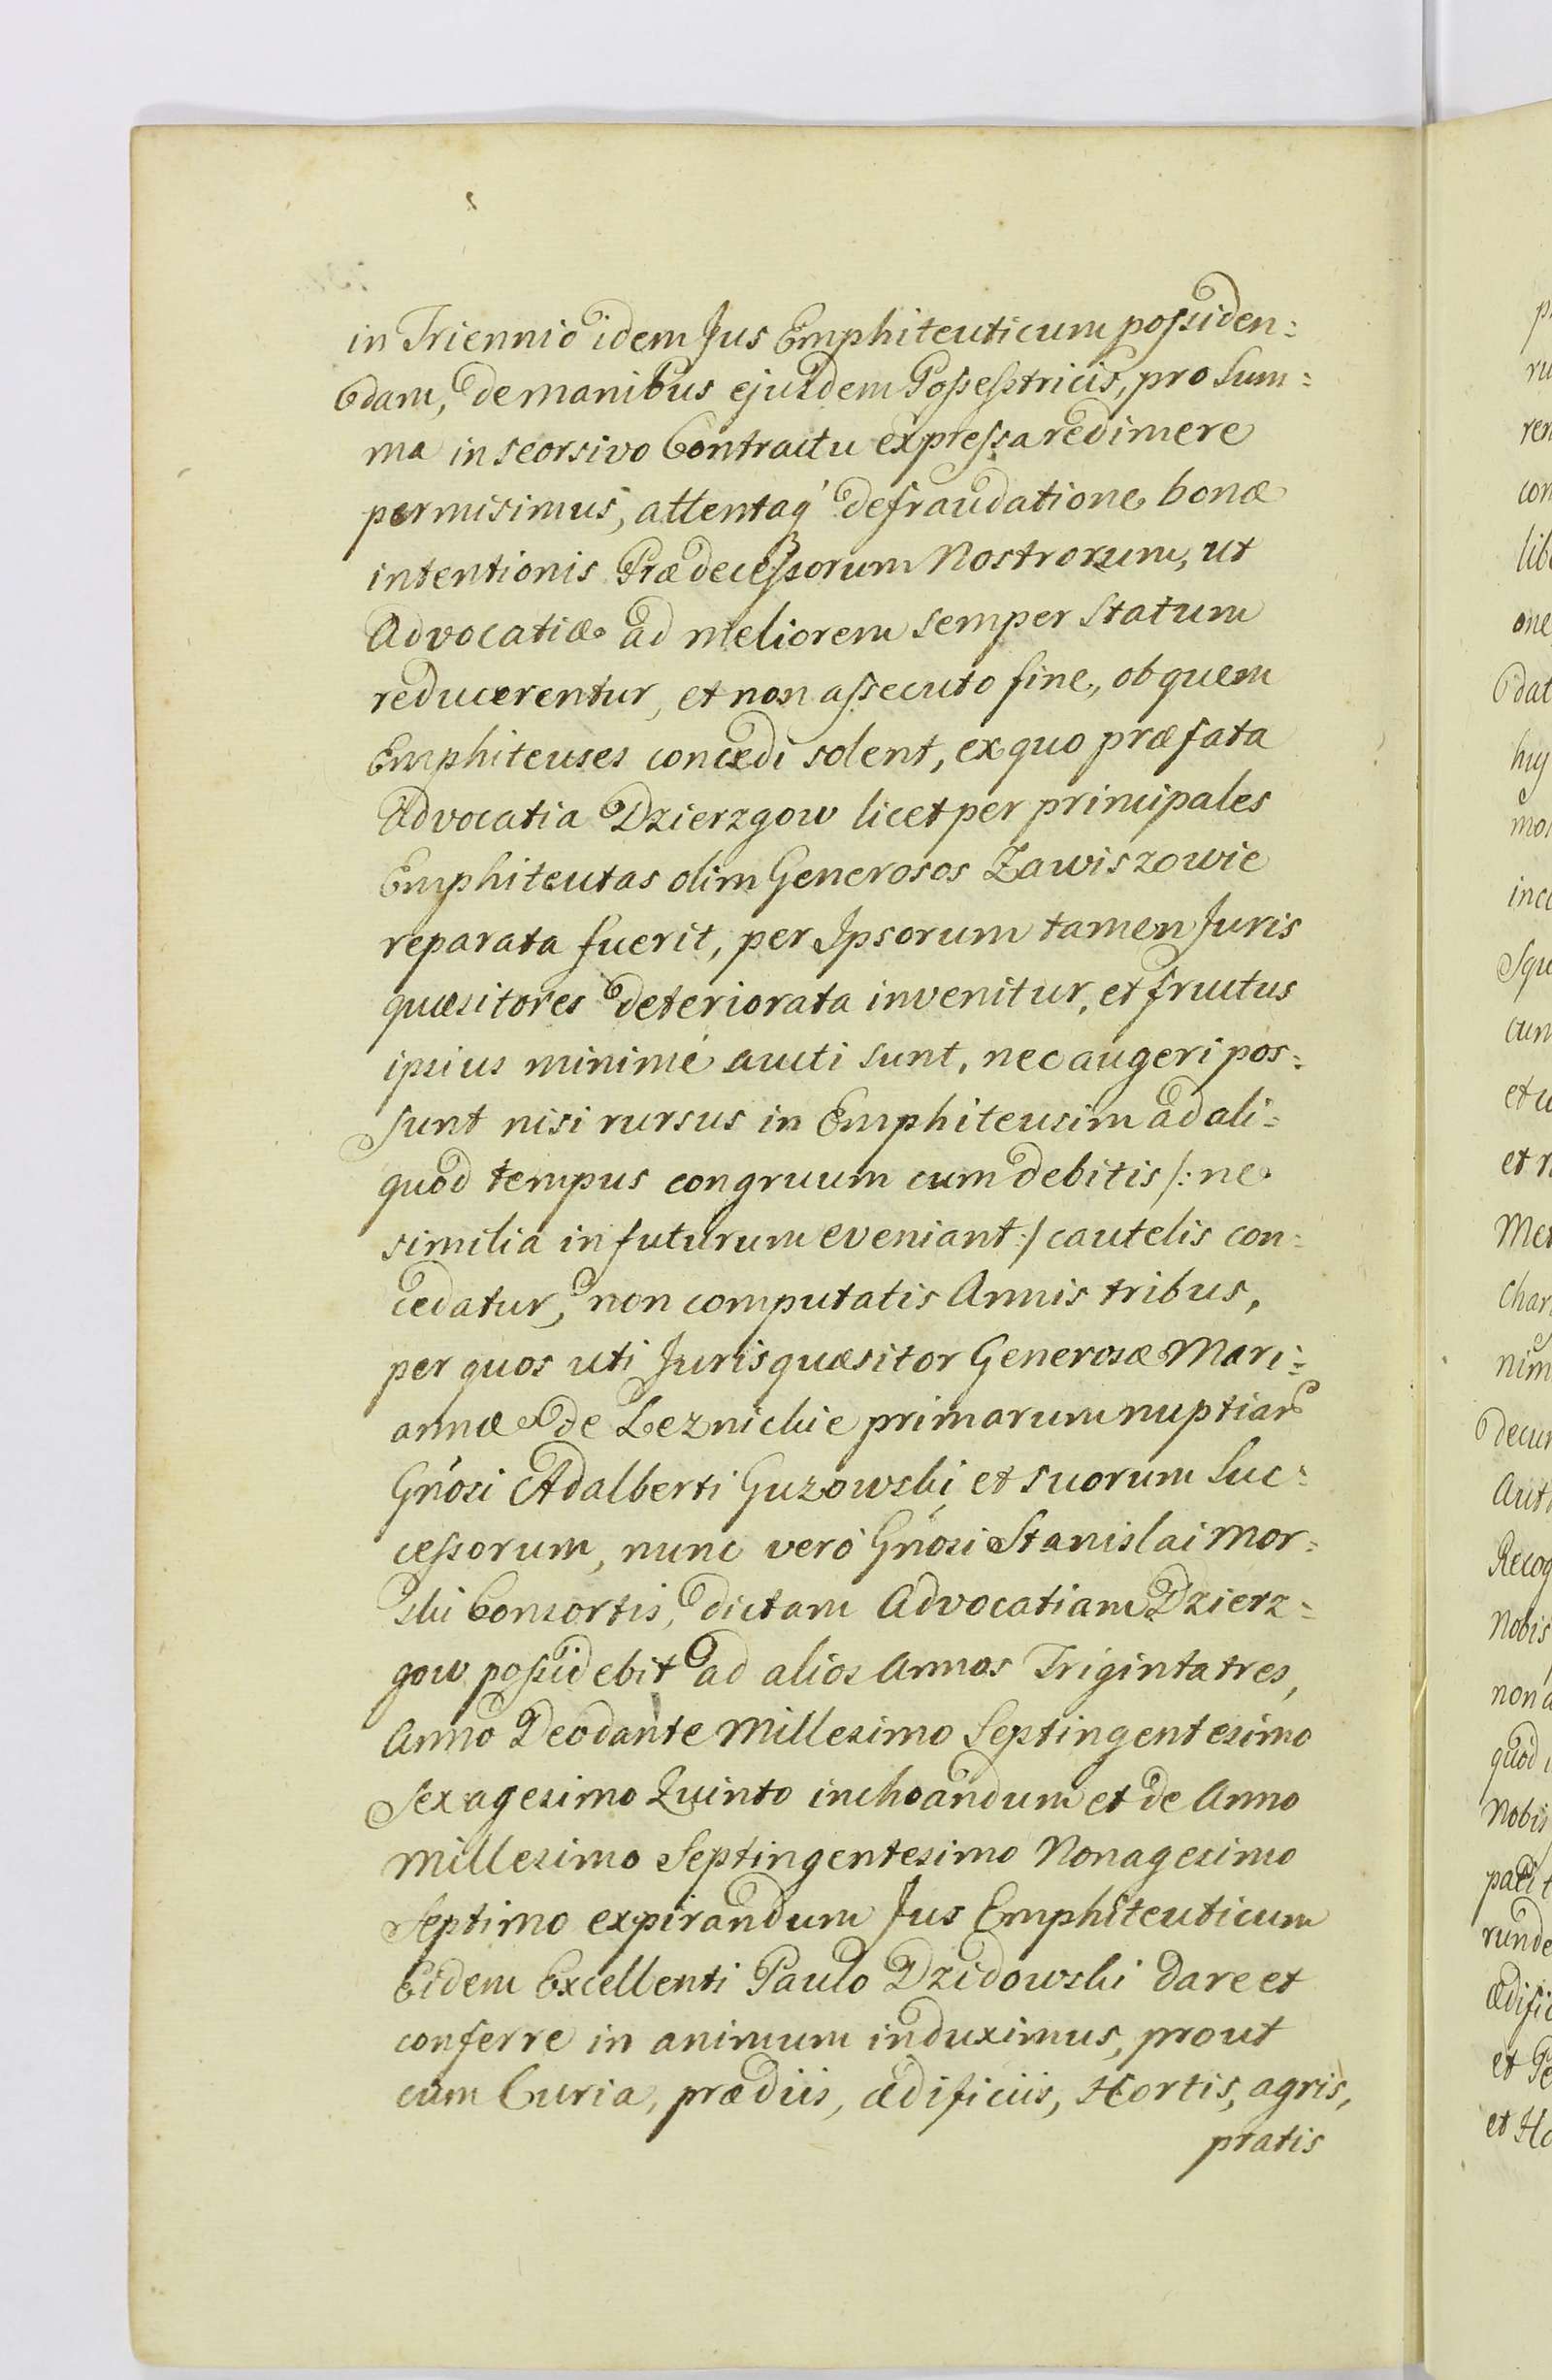 in Triennio idem Jus Emphiteuticum possiden=
dam, de manibus ejusdem Possesstricis, pro Sum=
ma in seorsivo Contractu expressa redimere
permisimus, attentaq́ defraudatione bonæ
intentionis Prædecessorum Nostrorum, ut
Advocatiæ ad meliorem semper statum
reducerentur, et non assecuto fine, ob quem
Emphiteuses concedi solent, ex quo præfata
Advocatia Dzierzgow licet per principales
Emphiteutas olim Generosos Zawiszowie
reparata fuerit, per Ipsorum tamen Juris
quæsitores deteriorata invenitur, et fructus
ipsius minimé aucti sunt, nec augeri pos=
sunt nisi rursus in Emphiteusim ad ali=
quod tempus congruum cum debitis /: ne
similia in futurum eveniant :/ cautelis con=
cedatur, non computatis Annis tribus,
per quos uti Jurisquæsitor Generosæ Mari=
annæ de Leznickie primarum nuptiar
Gńosi Adalberti Guzowski et suorum Suc=
cessorum, nunc veró Gńosi Stanislai Mor=
ski Consortis, dictam Advocatiam Dzierz=
gow possidebit ad alios Annos Triginta tres,
Anno Deo dante Millesimo Septingentesimo
Sexagesimo Quinto inchoandum et de Anno
Millesimo Septingentesimo Nonagesimo
Septimo expirandum Jus Emphiteuticum
Eidem Excellenti Paulo Dzidowski dare et
conferre in animum induximus, prout
cum Curia, prædiis, ædificiis, Hortis, agris,
pratis